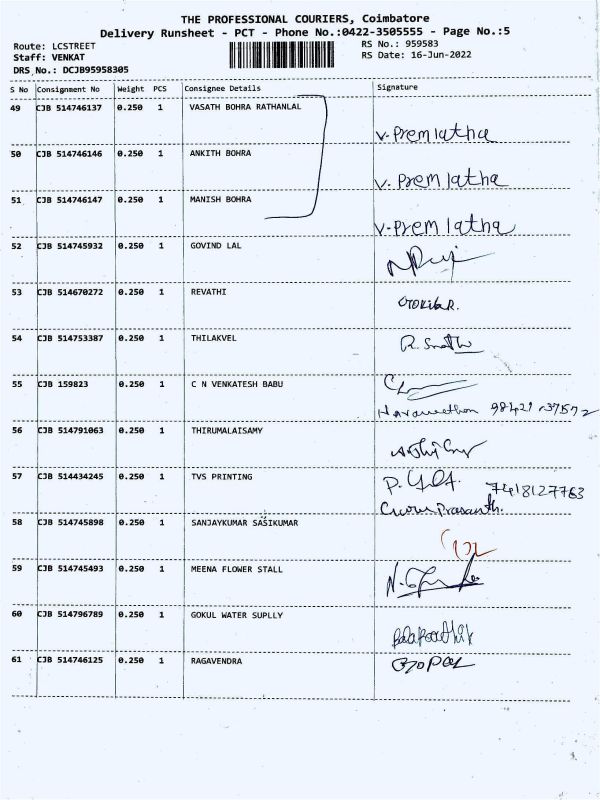 THE PROFESSIONAL COURIERS, Coimbatore
Delivery Runsheet - PCT - Phone No.:0422-3505555 - Page No.:5
Route: LCSTREET RS No.: 959583
Staff: VENKAT RS Date: 16-Jun-2022
DRS No.: DCJB95958305
S No Consignment No Weight PCS Consignee Details Signature
49 CJB 514746137 0.250 1 VASATH BOHRA RATHANLAL
V. Premlatha
50 CJB 514746146 0.250 1 ANKITH BOHRA
V. Premlatha
51 CJB 514746147 0.250 1 MANISH BOHRA
V. Premlatha
52 CJB 514745932 0.250 1 GOVIND LAL
53 CJB 514670272 0.250 1 REVATHI
54 CJB 514753387 0.250 1 THILAKVEL
55 CJB 159823 0.250 1 C N VENKATESH BABU
56 CJB 514791063 0.250 1 THIRUMALAISAMY
57 CJB 514434245 0.250 1 TVS PRINTING
7418127763
Prasanth.
58 CJB 514745898 0.250 1 SANJAYKUMAR SASIKUMAR
59 CJB 514745493 0.250 1 MEENA FLOWER STALL
60 CJB 514796789 0.250 1 GOKUL WATER SUPLLY
61 CJB 514746125 0.250 1 RAGAVENDRA